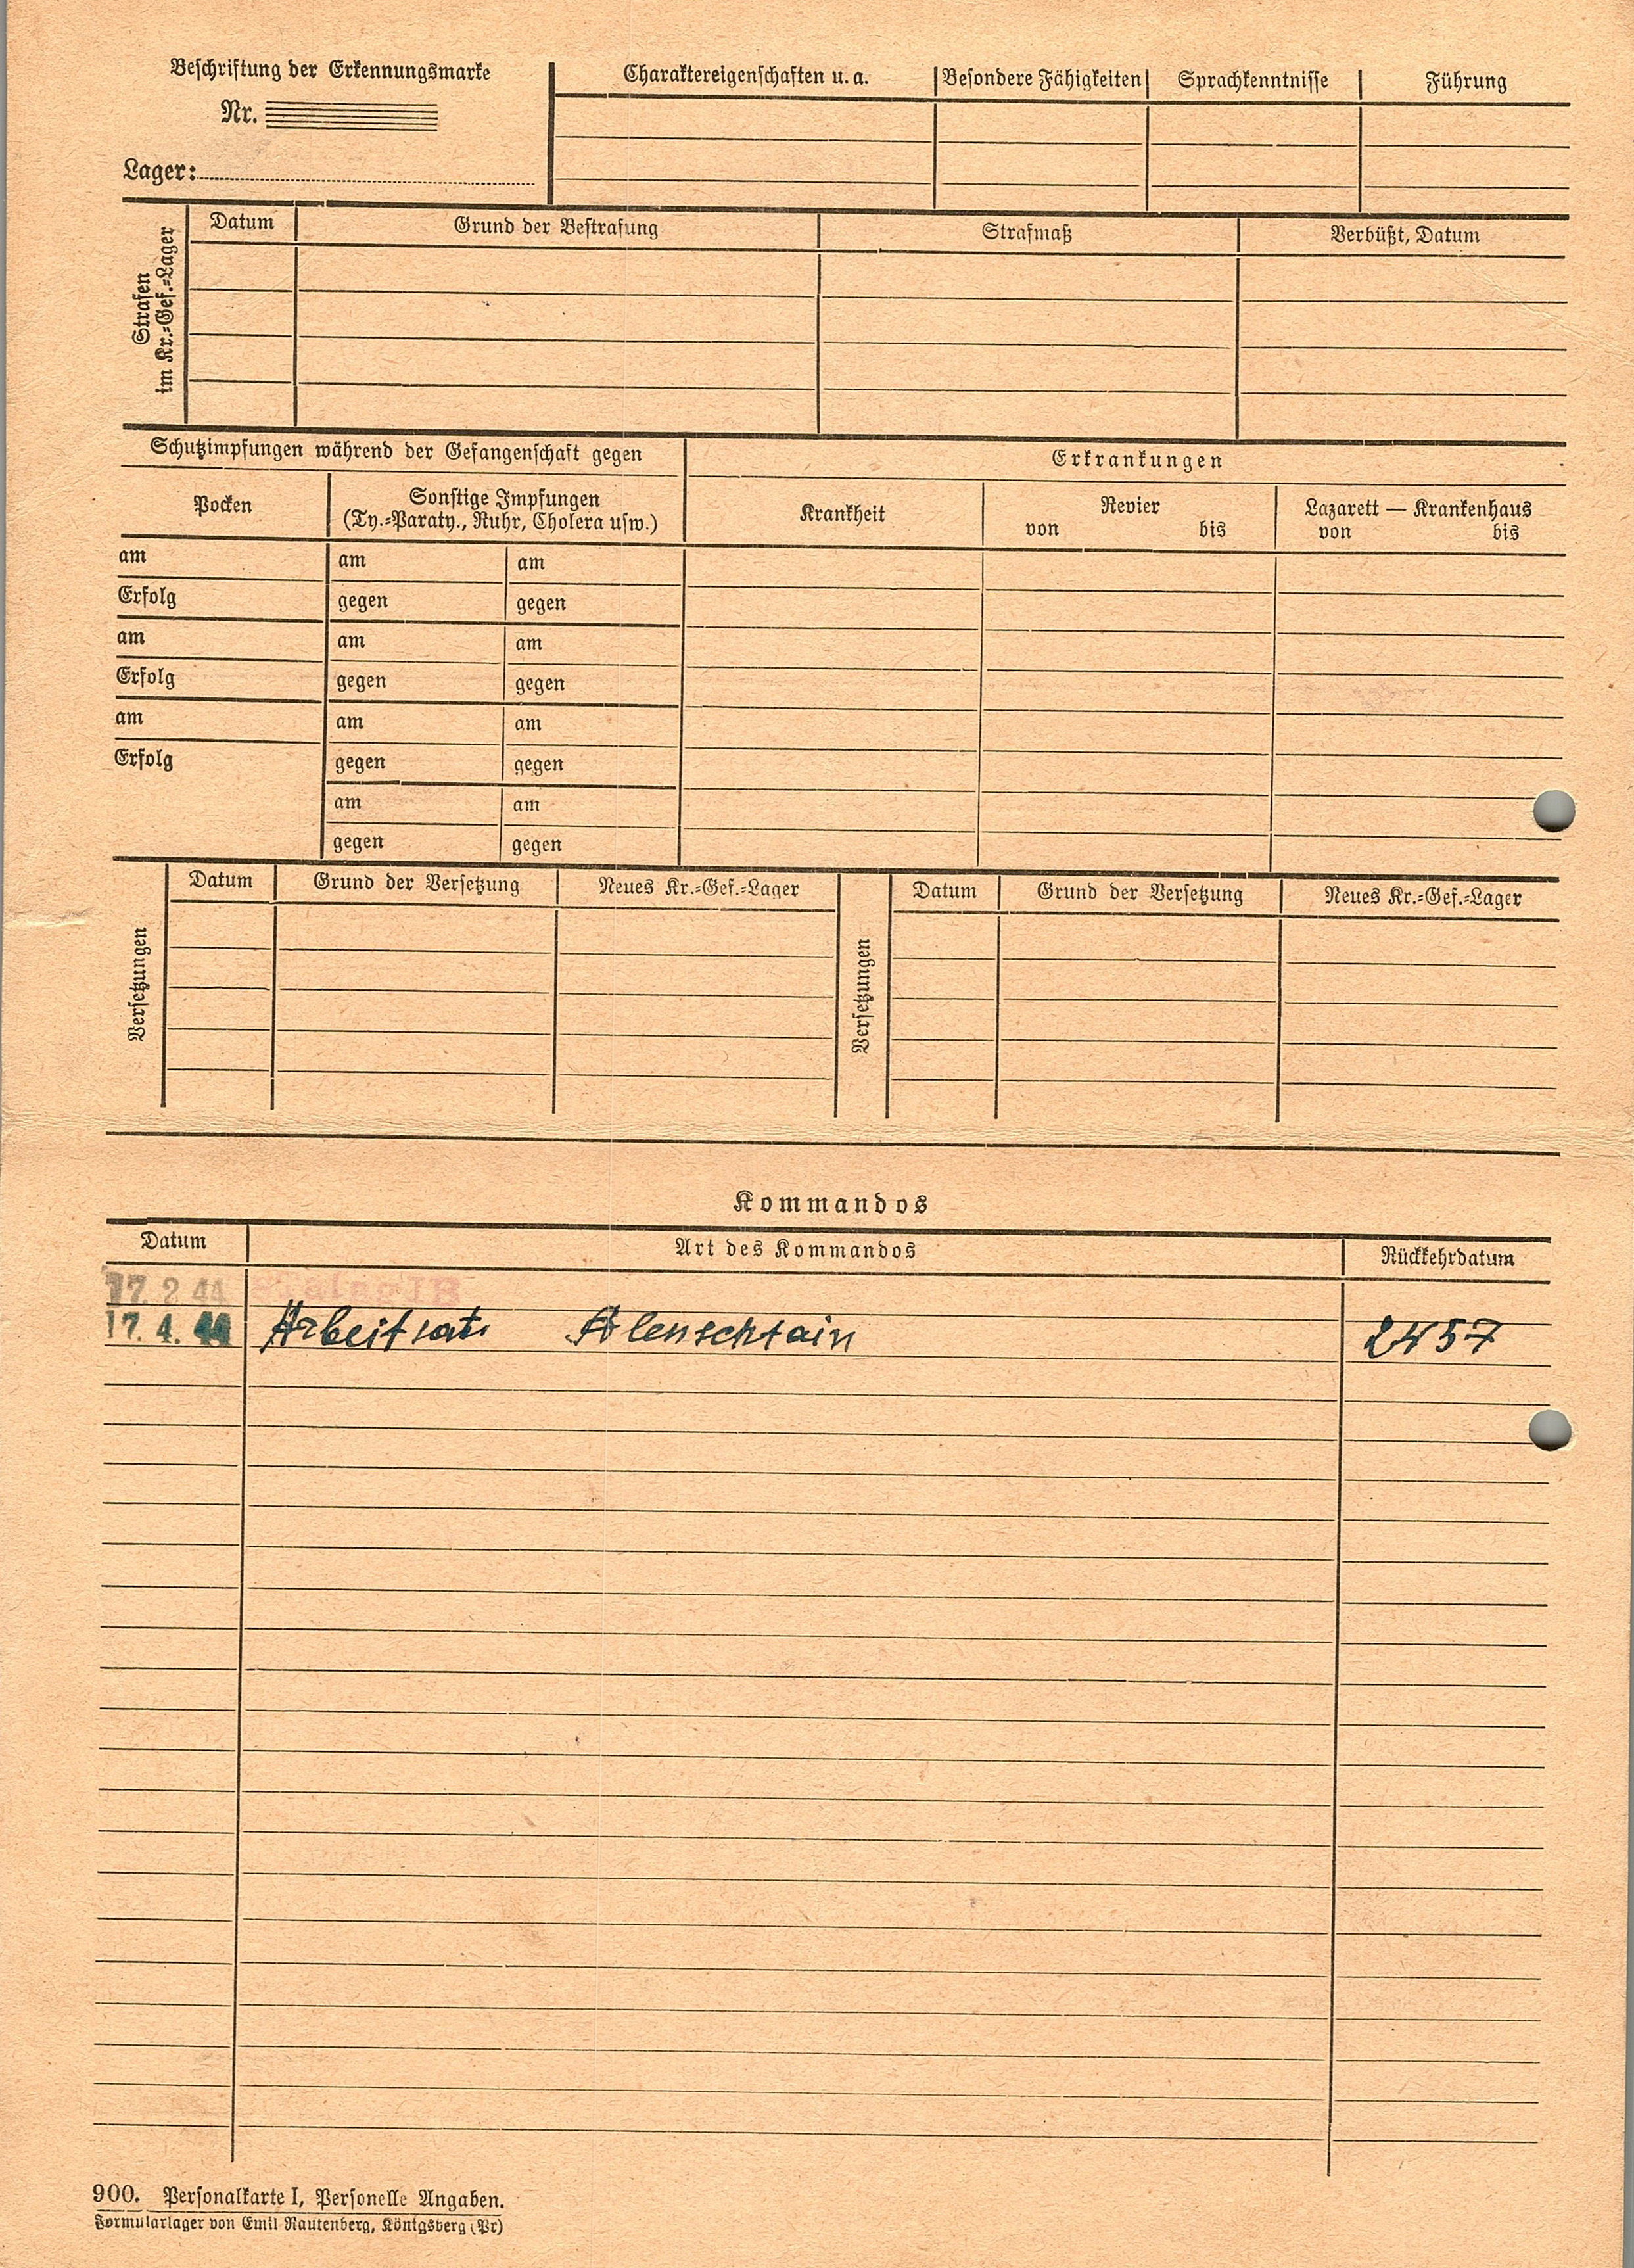 Beschriftung der Erkennungsmarke
Nr.
Lager:
Charaktereigenschaften u. a. Besondere Fähigkeiten Sprachkenntnisse Führung
Strafen
im Kr.=Gef.=Lager
Datum Grund der Bestrafung Strafmaß Verbüßt, Datum
Schutzimpfungen während der Gefangenschaft gegen
Erkrankungen
Pocken
Sonstige Impfungen
(Ty.=Paraty., Ruhr, Cholera usw.)
Krankheit
Revier
von bis
Lazarett — Krankenhaus
von bis
am am am
Erfolg gegen gegen
am am am
Erfolg gegen gegen
am am am
Erfolg gegen gegen
am am
gegen gegen
Versetzungen
Datum Grund der Versetzung Neues Kr.=Gef.=Lager
Versetzungen
Datum Grund der Versetzung Neues Kr.=Gef.=Lager
Kommandos
Datum Art des Kommandos Rückkehrdatum
17. 2 44 Stalag IB
17. 4. 44 Alenschtain 2457
900. Personalkarte I, Personelle Angaben.
Formularlager von Emil Rautenberg, Königsberg (Pr)